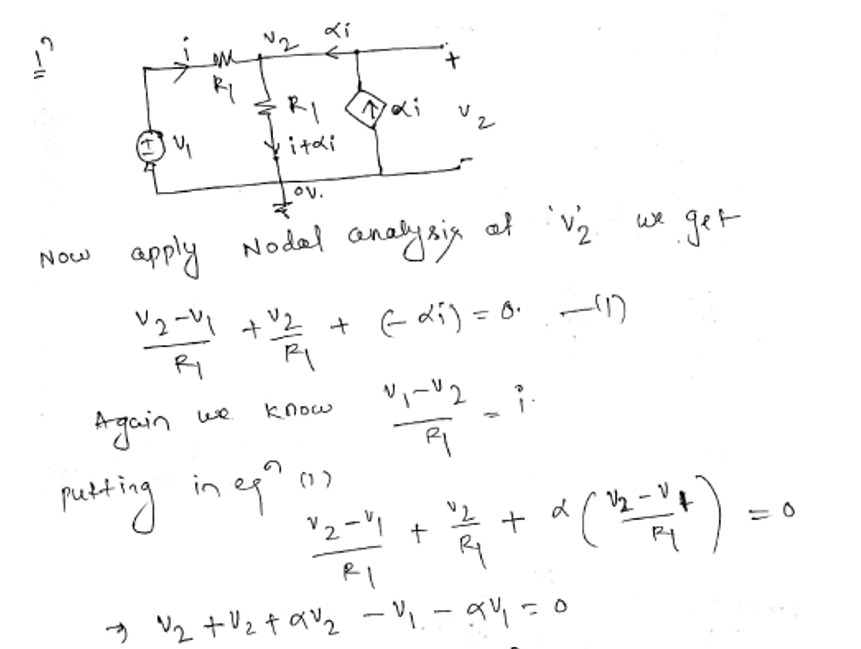 1)
i
R₁
V₂
αi
+
R₁
αi
V₂
V₁
i+αi
-
0V.
Now apply Nodal analysis at 'V₂' we get
(V₂-V₁)/R₁ + V₂/R₁ + (-αi) = 0. —(1)
Again we know (V₁-V₂)/R₁ = i.
putting in eqⁿ (1)
(V₂-V₁)/R₁ + V₂/R₁ + α((V₂-V₁)/R₁) = 0
→ V₂ + V₂ + αV₂ - V₁ - αV₁ = 0